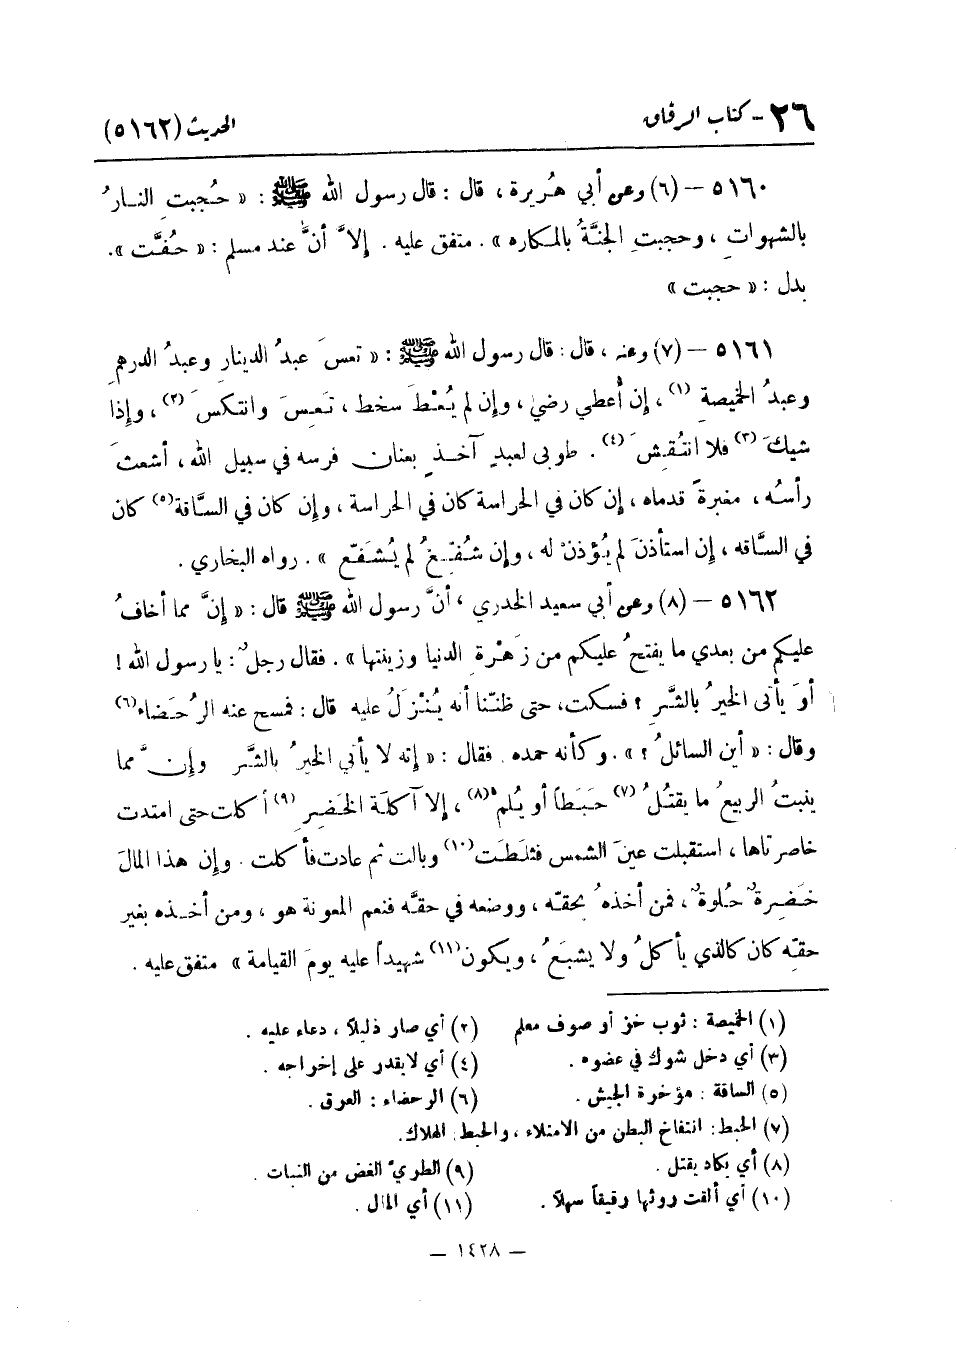 ٢٦ - كتاب الرقاق
الحديث (٥١٦٢)
٥١٦٠ – (٦) وعن أبي هُريرة ، قال : قال رسول الله ﷺ : « حُجبتِ النارُ
بالشهواتِ ، وحجبتِ الجنَّةُ بالمكاره » . متفق عليه . إلاَّ أنَّ عند مسلم : « حُفَّت » .
بدل : « حجبت »
٥١٦١ – (٧) وعنه ، قال : قال رسول الله ﷺ : « تعسَ عبدُ الدينارِ وعبدُ الدرهمِ
وعبدُ الخميصةِ (١) ، إن أُعطي رضيَ ، وإن لم يُعْطَ سخط ، تَعِسَ وانتكسَ (٢) ، وإذا
شيكَ (٣) فلا انتُقِشَ (٤) . طوبى لعبدٍ آخذٍ بعنان فرسه في سبيل الله ، أشعثَ
رأسُه ، مغبرةً قدماه ، إن كان في الحراسة كان في الحراسة ، وإن كان في السَّاقة (٥) كان
في السَّاقه ، إن استأذنَ لم يُؤذنْ له ، وإن شَفَعَ لم يُشَفّع » . رواه البخاري .
٥١٦٢ – (٨) وعن أبي سعيد الخدري ، أنَّ رسول الله ﷺ قال : « إنَّ مما أخافُ
عليكم من بعدي ما يفتحُ عليكم من زَهْرةِ الدنيا وزينتها » . فقال رجلٌ : يا رسول الله !
أوَ يأتي الخيرُ بالشَّرِ ؟ فسكت، حتى ظننّا أنه يُنْزَلُ عليه قال : فمسح عنه الرُحَضاء (٦)
وقال : « أين السائلُ ؟ » . وكأنه حمده . فقال : « إنه لا يأتي الخيرُ بالشَّر وإنَّ مما
ينبتُ الربيعُ ما يقتُلُ (٧) حَبَطاً أو يُلمُّ (٨) ، إلا آكلَة الخَضِرِ (٩) أكلت حتى امتدت
خاصرتاها ، استقبلت عينَ الشمس فثلَطَت (١٠) وبالت ثم عادت فأكلت . وإن هذا المالَ
خَضِرةٌ حُلوةٌ ، فمن أخذهُ بحقه ، ووضعه في حقّه فنعم المعونة هو ، ومن أخذه بغير
حقه كان كالذي يأكلُ ولا يشبَعُ ، ويكون (١١) شهيداً عليه يومَ القيامة » متفق عليه .
(١) الخميصة : ثوب خز أو صوف معلم
(٢) أي صار ذليلاً ، دعاء عليه .
(٣) أي دخل شوك في عضوه .
(٤) أي لا يقدر على إخراجه .
(٥) الساقة : مؤخرة الجيش .
(٦) الرحضاء : العرق .
(٧) الحبط : انتفاخ البطن من الامتلاء ، والحبط : الهلاك.
(٨) أي يكاد يقتل .
(٩) الطريّ الغض من النبات .
(١٠) أي ألقت روثها رقيقاً سهلاً .
(١١) أي المال .
– ١٤٢٨ –